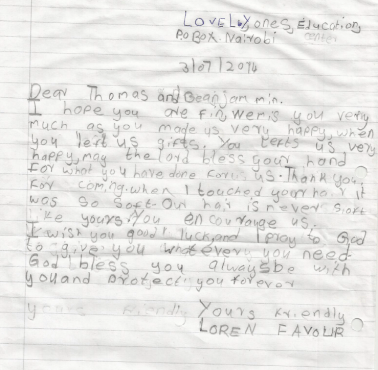 LOVELY ones, Education
PO BOX. Nairobi center
3/07/2014
Dear Thomas and Beanjanmin.
I hope you are Fin wemis you very
much as you made us very happy, when
you left us gifts. You lefts us very
happy, may the lord bless your hand
For what you have done For us. Thank you
For coming. when I touched your hair it
was so soft. Our hair is never soft
like yours. You encourange us,
I wish you good luck, and I pray to God
to give you whatevery you need.
God bless you always be with
you and protect you forever
yours Friendly Yours Friendly
LOREN FAVOUR